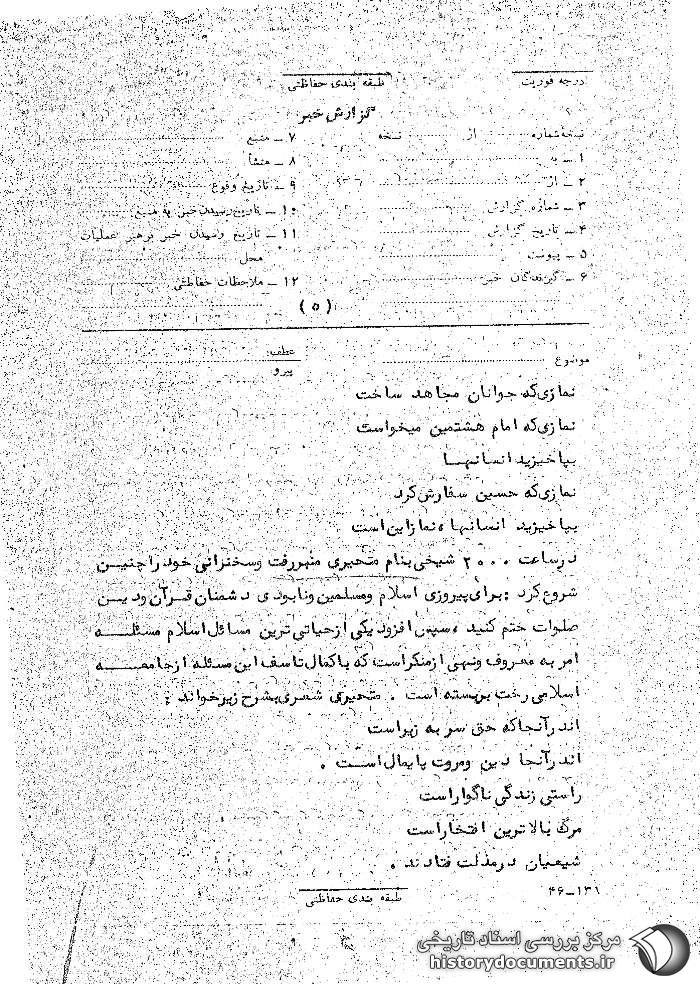 درجه فوریت
طبقه بندی حفاظتی
گزارش خبر
نسخه شماره از نسخه
۱ ـ به
۲ ـ از
۳ ـ شماره گزارش
۴ ـ تاریخ گزارش
۵ ـ پیوست
۶ ـ گیرندگان خبر
۷ ـ منبع
۸ ـ منشأ
۹ ـ تاریخ وقوع
۱۰ ـ تاریخ رسیدن خبر به منبع
۱۱ ـ تاریخ رسیدن خبر برهبر عملیات
محل
۱۲ ـ ملاحظات حفاظتی
(۵)
موضوع
عطف:
پیرو
نمازی‌که جوانان مجاهد ساخت
نمازی‌که امام هشتمین میخواست
بپاخیزید انسانهـا
نمازی‌که حسین سفارش‌کرد
بپاخیزید انسانها ، نماز این است
در ساعت ۲۰۰۰ شیخی بنام متحیری منبر رفت وسخنرانی خود را چنیـن
شروع‌کرد : برای پیروزی اسلام ومسلمین ونابودی دشمنان قـرآن ودیـن
صلوات ختم کنید ، سپس افزود یکی از حیاتی ترین مسائل اسلام مسئلـه
امر به معروف ونهی از منکر است که با کمال تاسف این مسئله از جامعـه
اسلامی رخت بر بسته است . متحیری شعری بشرح زیر خواند :
اندر آنجا که حق سر به زیر است
اندر آنجا دین ومروت پایمال اسـت .
راستی زندگی ناگوار است
مرگ بالاترین افتخار است
شیعیان در مذلت فتادند .
۴۶-۱۳۱
طبقه بندی حفاظتی
مرکز بررسی اسناد تاریخی
historydocuments.ir